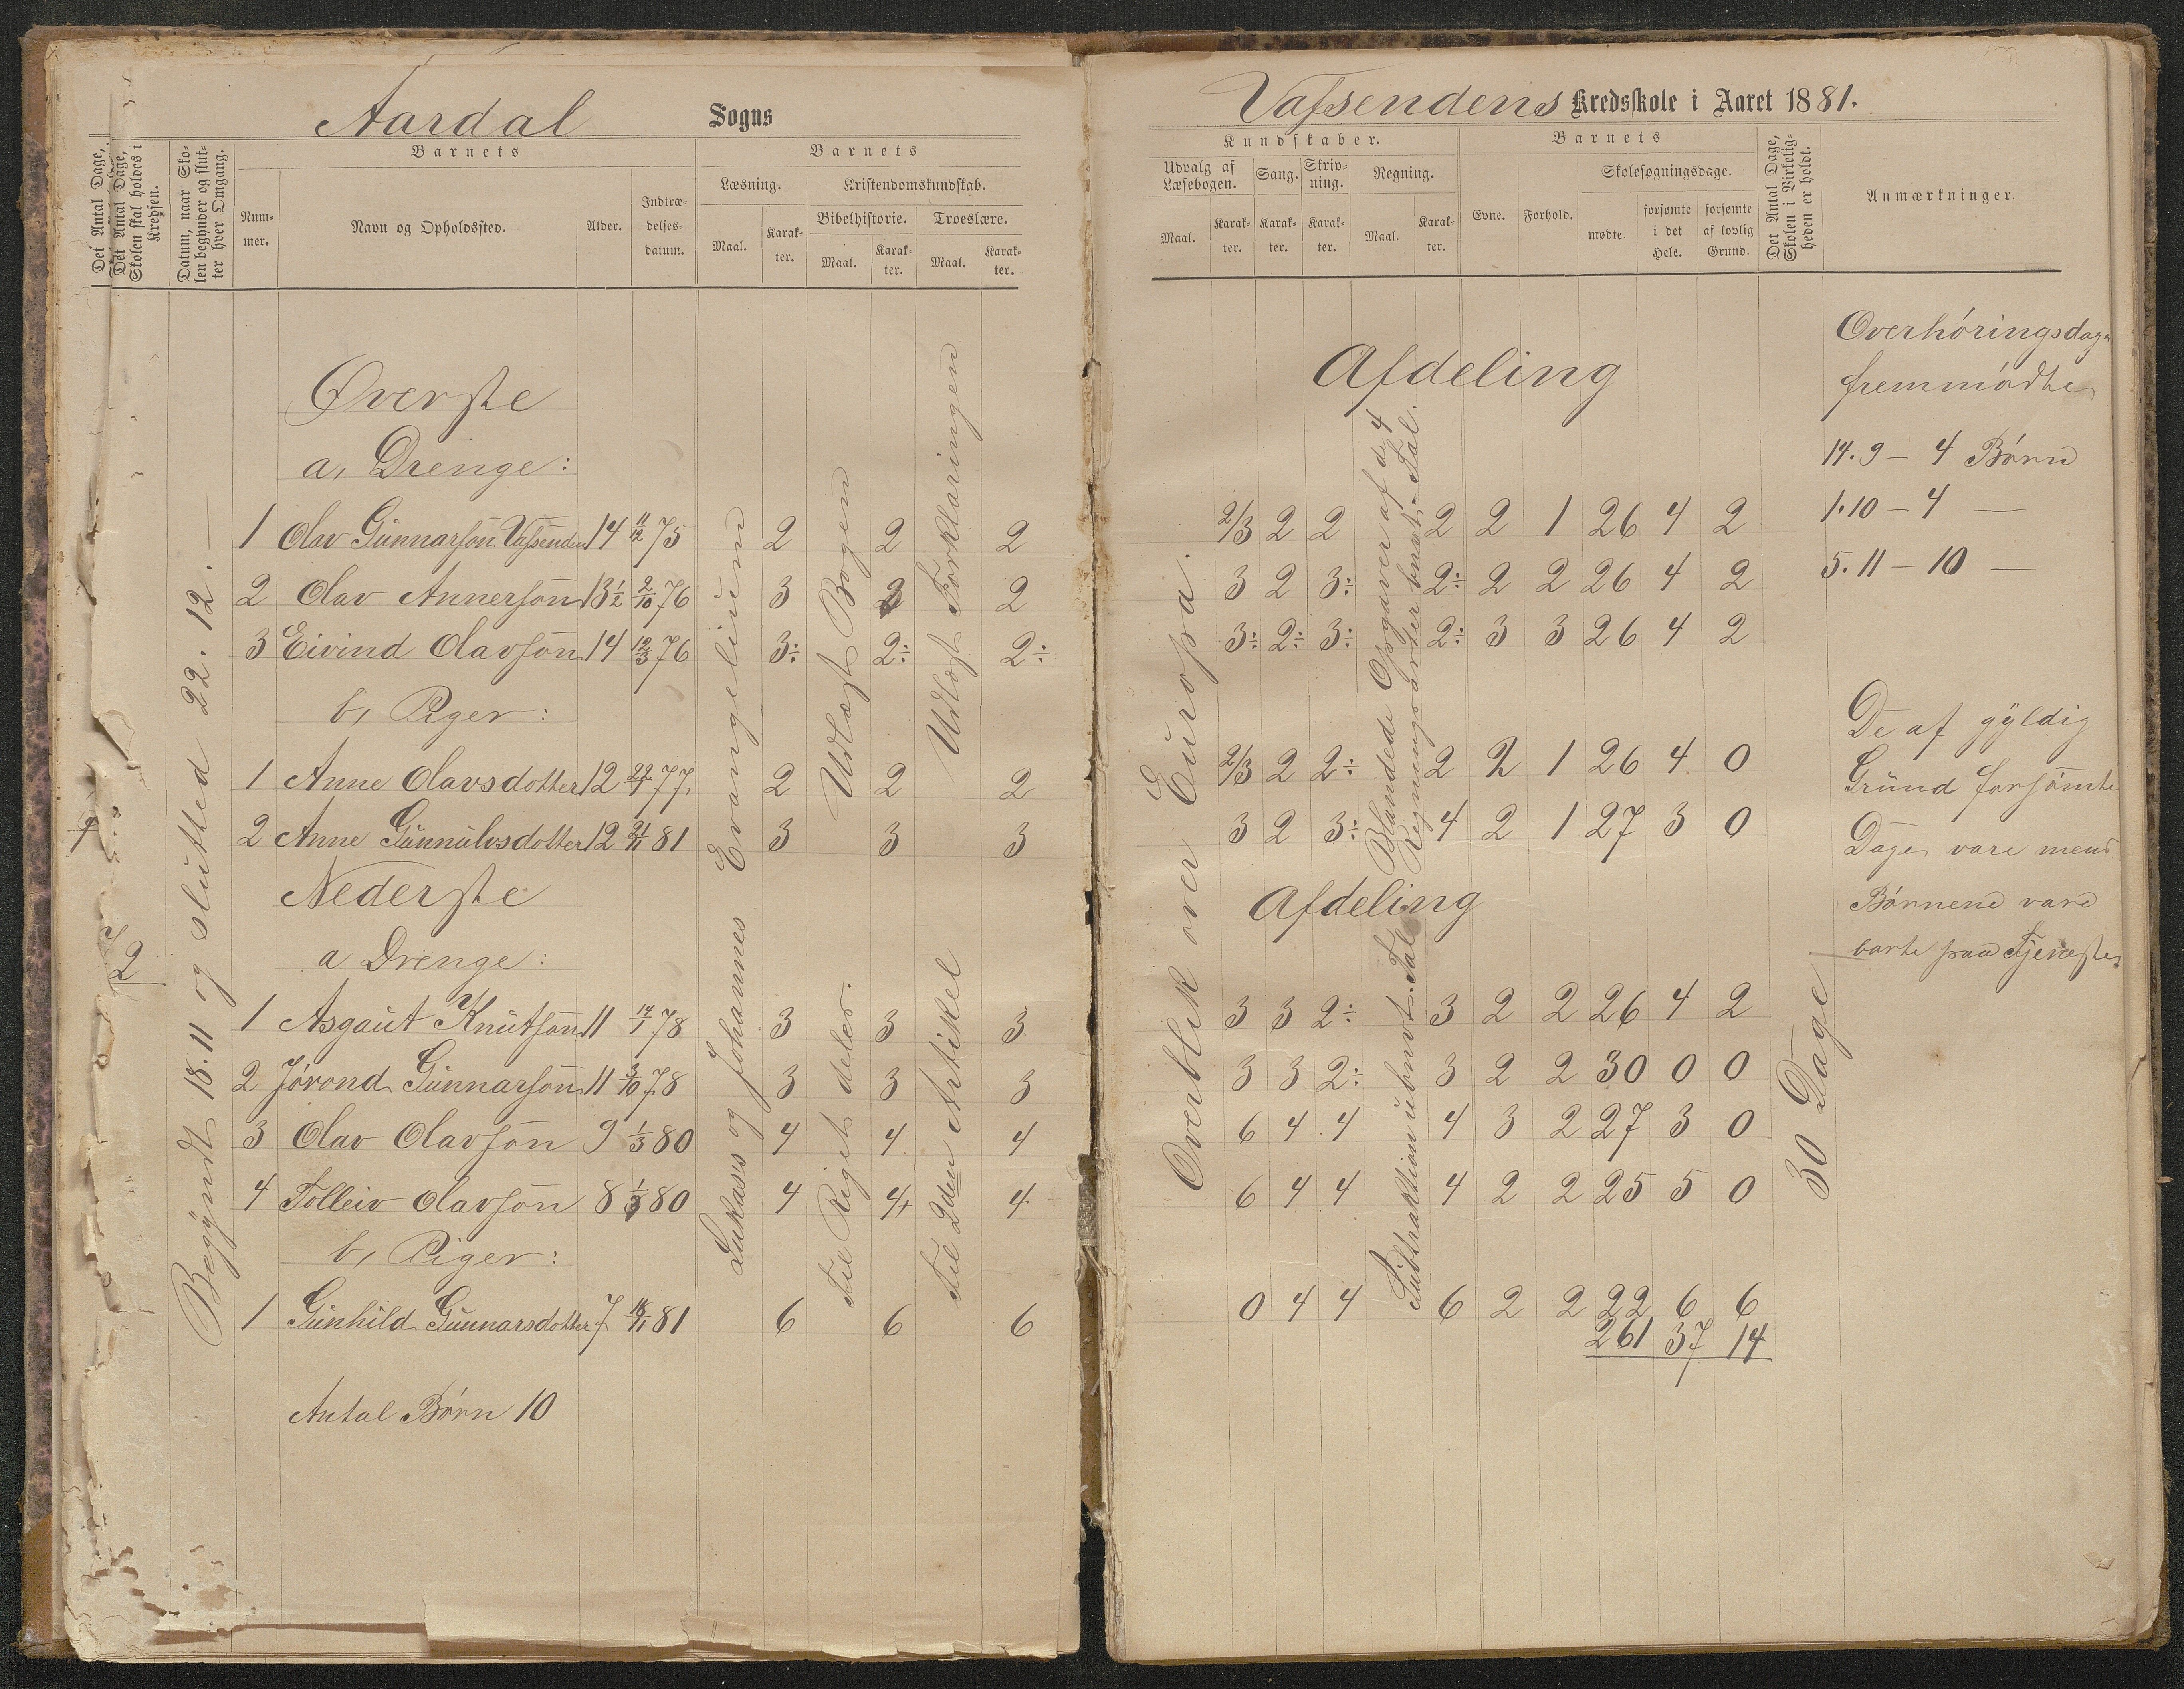 Aardal Sogns
Det Antal Dage,
Det Antal Dage, Skolen skal holdes i Kredsen.
Datum, naar Skolen begynder og slutter hver Omgang.
Barnets
Nummer.
Navn og Opholdssted.
Alder.
Indtrædelses-datum.
Barnets
Læsning.
Maal.
Karakter.
Kristendomskundskab.
Bibelhistorie.
Maal.
Karakter.
Troeslære.
Maal.
Karakter.
Begyndt 18.11 og sluttet 22.12.—
Øverste
a, Drenge:
1 Olav Gunnarson Vassenden 14 11/12 75 2 2 2
2 Olav Annersøn 13½ 2/10 76 3 2 2
3 Eivind Olavsøn 14 12/3 76 3÷ 2÷ 2÷
b, Piger:
1 Anne Olavsdotter 12 22/1 77 2 2 2
2 Anne Gunnulvsdotter 12 21/11 81 3 3 3
Nederste
a Drenge:
1 Asgaut Knutsøn 11 14/1 78 3 3 3
2 Jørond Gunnarsøn 11 3/10 78 3 3 3
3 Olav Olavsøn 9 1/3 80 4 4 4
4 Tolleiv Olavsøn 8 1/3 80 4 4+ 4
b, Piger:
1 Gunhild Gunnarsdotter 7 18/11 81 6 6 6
Antal Børn 10
Lukas's og Johannes Evangelium
Udlæst Bogen
Til Riget deler.
Udlæst Forklaringen
Til 2den Artikel
2
Vassendens Kredsskole i Aaret 1881.
Kundskaber.
Udvalg af Læsebogen.
Maal.
Karakter.
Sang.
Karakter.
Skrivning.
Karakter.
Regning.
Maal.
Karakter.
Barnets
Evne.
Forhold.
Skolesøgningsdage.
mødte.
forsømte i det Hele.
forsømte af lovlig Grund.
Det Antal Dage, Skolen i Virkeligheden er holdt.
Anmærkninger.
Afdeling
2/3 2 2 2 2 1 26 4 2
3 2 3÷ 2÷ 2 2 26 4 2
3÷ 2÷ 3÷ 2÷ 3 3 26 4 2
2/3 2 2÷ 2 2 1 26 4 0
3 2 3÷ 4 2 1 27 3 0
Afdeling
3 3 2÷ 3 2 2 26 4 2
3 3 2÷ 3 2 2 30 0 0
6 4 4 4 3 2 27 3 0
6 4 4 4 2 2 25 5 0
0 4 4 6 2 2 22 6 6
261 37 14
Overblik over Europa.
Blandede Opgaver af d 4
Regningsarter Tal.
Subtraktion ubnvt. Tal
30 Dage
Overhøringsdage
fremmødte
14.9 – 4 Børn
1.10 – 4 —
5.11 – 10 —
De af gyldig
Grund forsømte
Dage vare mens
Børnene vare
borte paa Tjeneste.